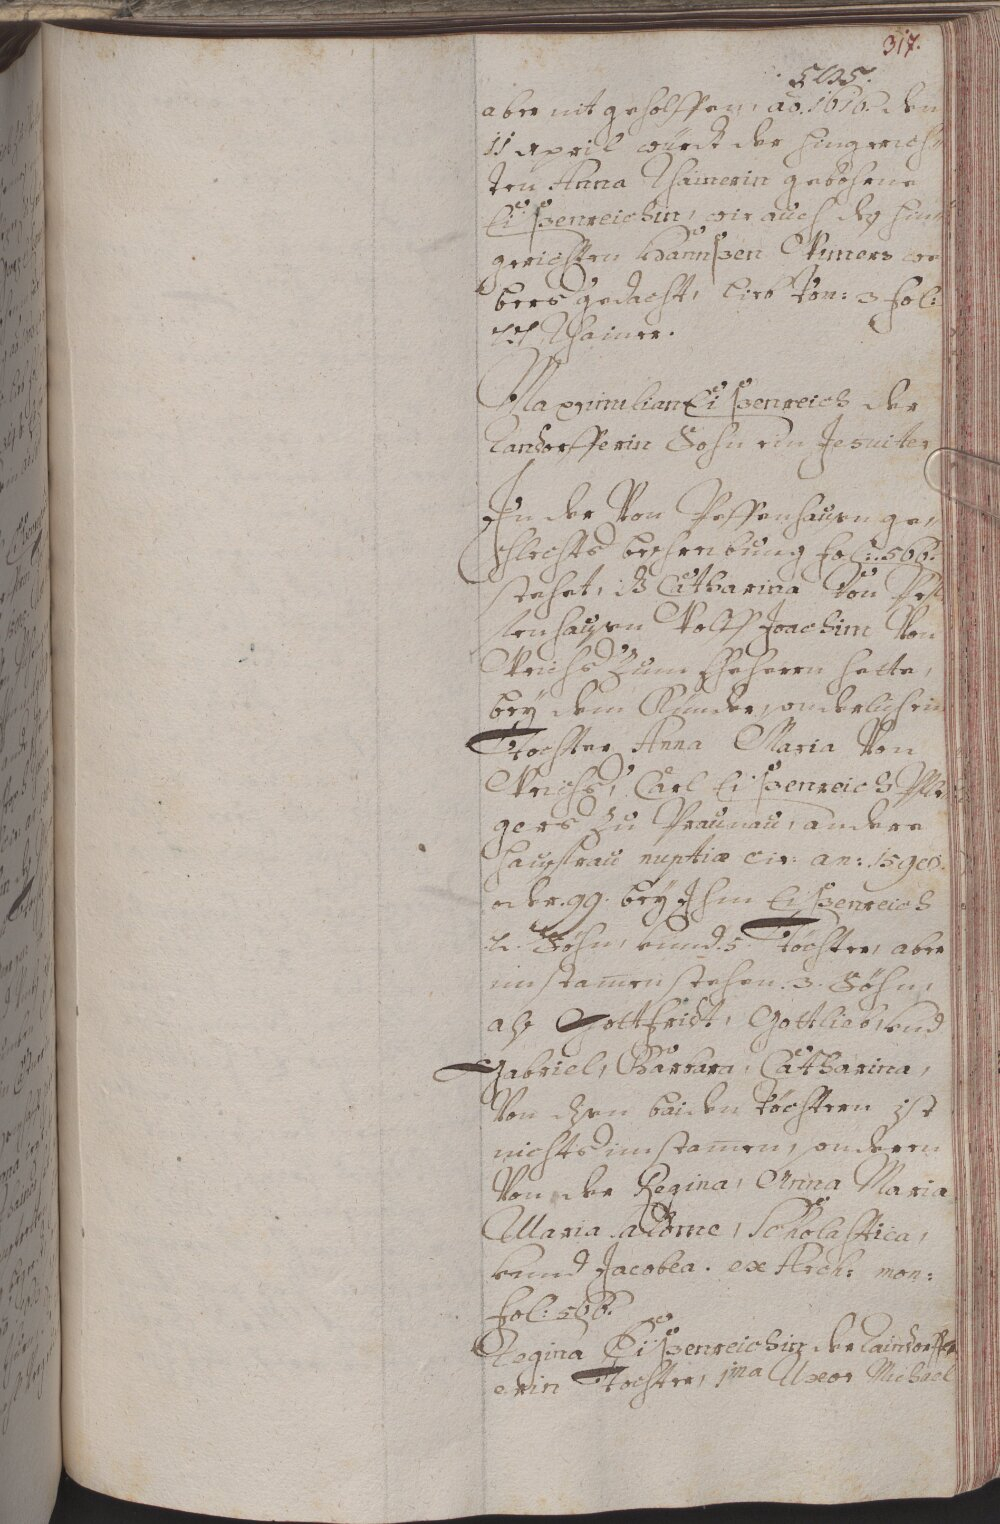 317.
5125.
aber nit geholffen, ao. 1616. den
11 April würdt der hingerich
ten Anna Thainerin gebohrne
Eißenreichin, wie auch deß hin
gerichten Hannßen
bers gedacht, lib: Von: 3 fol:
Thainer.
Maximilian Eißenreich der
Tandorfferin Sohn ein Jesuiter
In der Von Peffenhausen ge,
schlechts beschreibung fol: 566.
stehet, dß Catharina Von Pef
fenhausen Wolff Joachim Von
Weichs Zum Eheherrn hette,
bey dem Kinder, sonderlich ein
Tochter Anna Maria Von
Weichs, Carl Eißenreich Pfle
gers Zu Praunau, andere
haußfrau nuptiæ cir: an: 1598.
oder. 99. bey Ihm Eißenreich
2. Söhn, vnnd. 5. Töchter, aber
im stamen stehen. 3. Söhn,
alß Gottfridt, Gottlieb, vnd
Gabriel, Barbara, Catharina,
Von disen baiden töchtern ist
nichts im stamen, sondern
Von der Regina, Anna Maria
Maria Salome, Scholastica,
vnnd Jacobea. ex Arch: mon:
fol: 566.
Regina Eißenreichin der Taindorff
erin Tochter, 1ma Uxor Michael